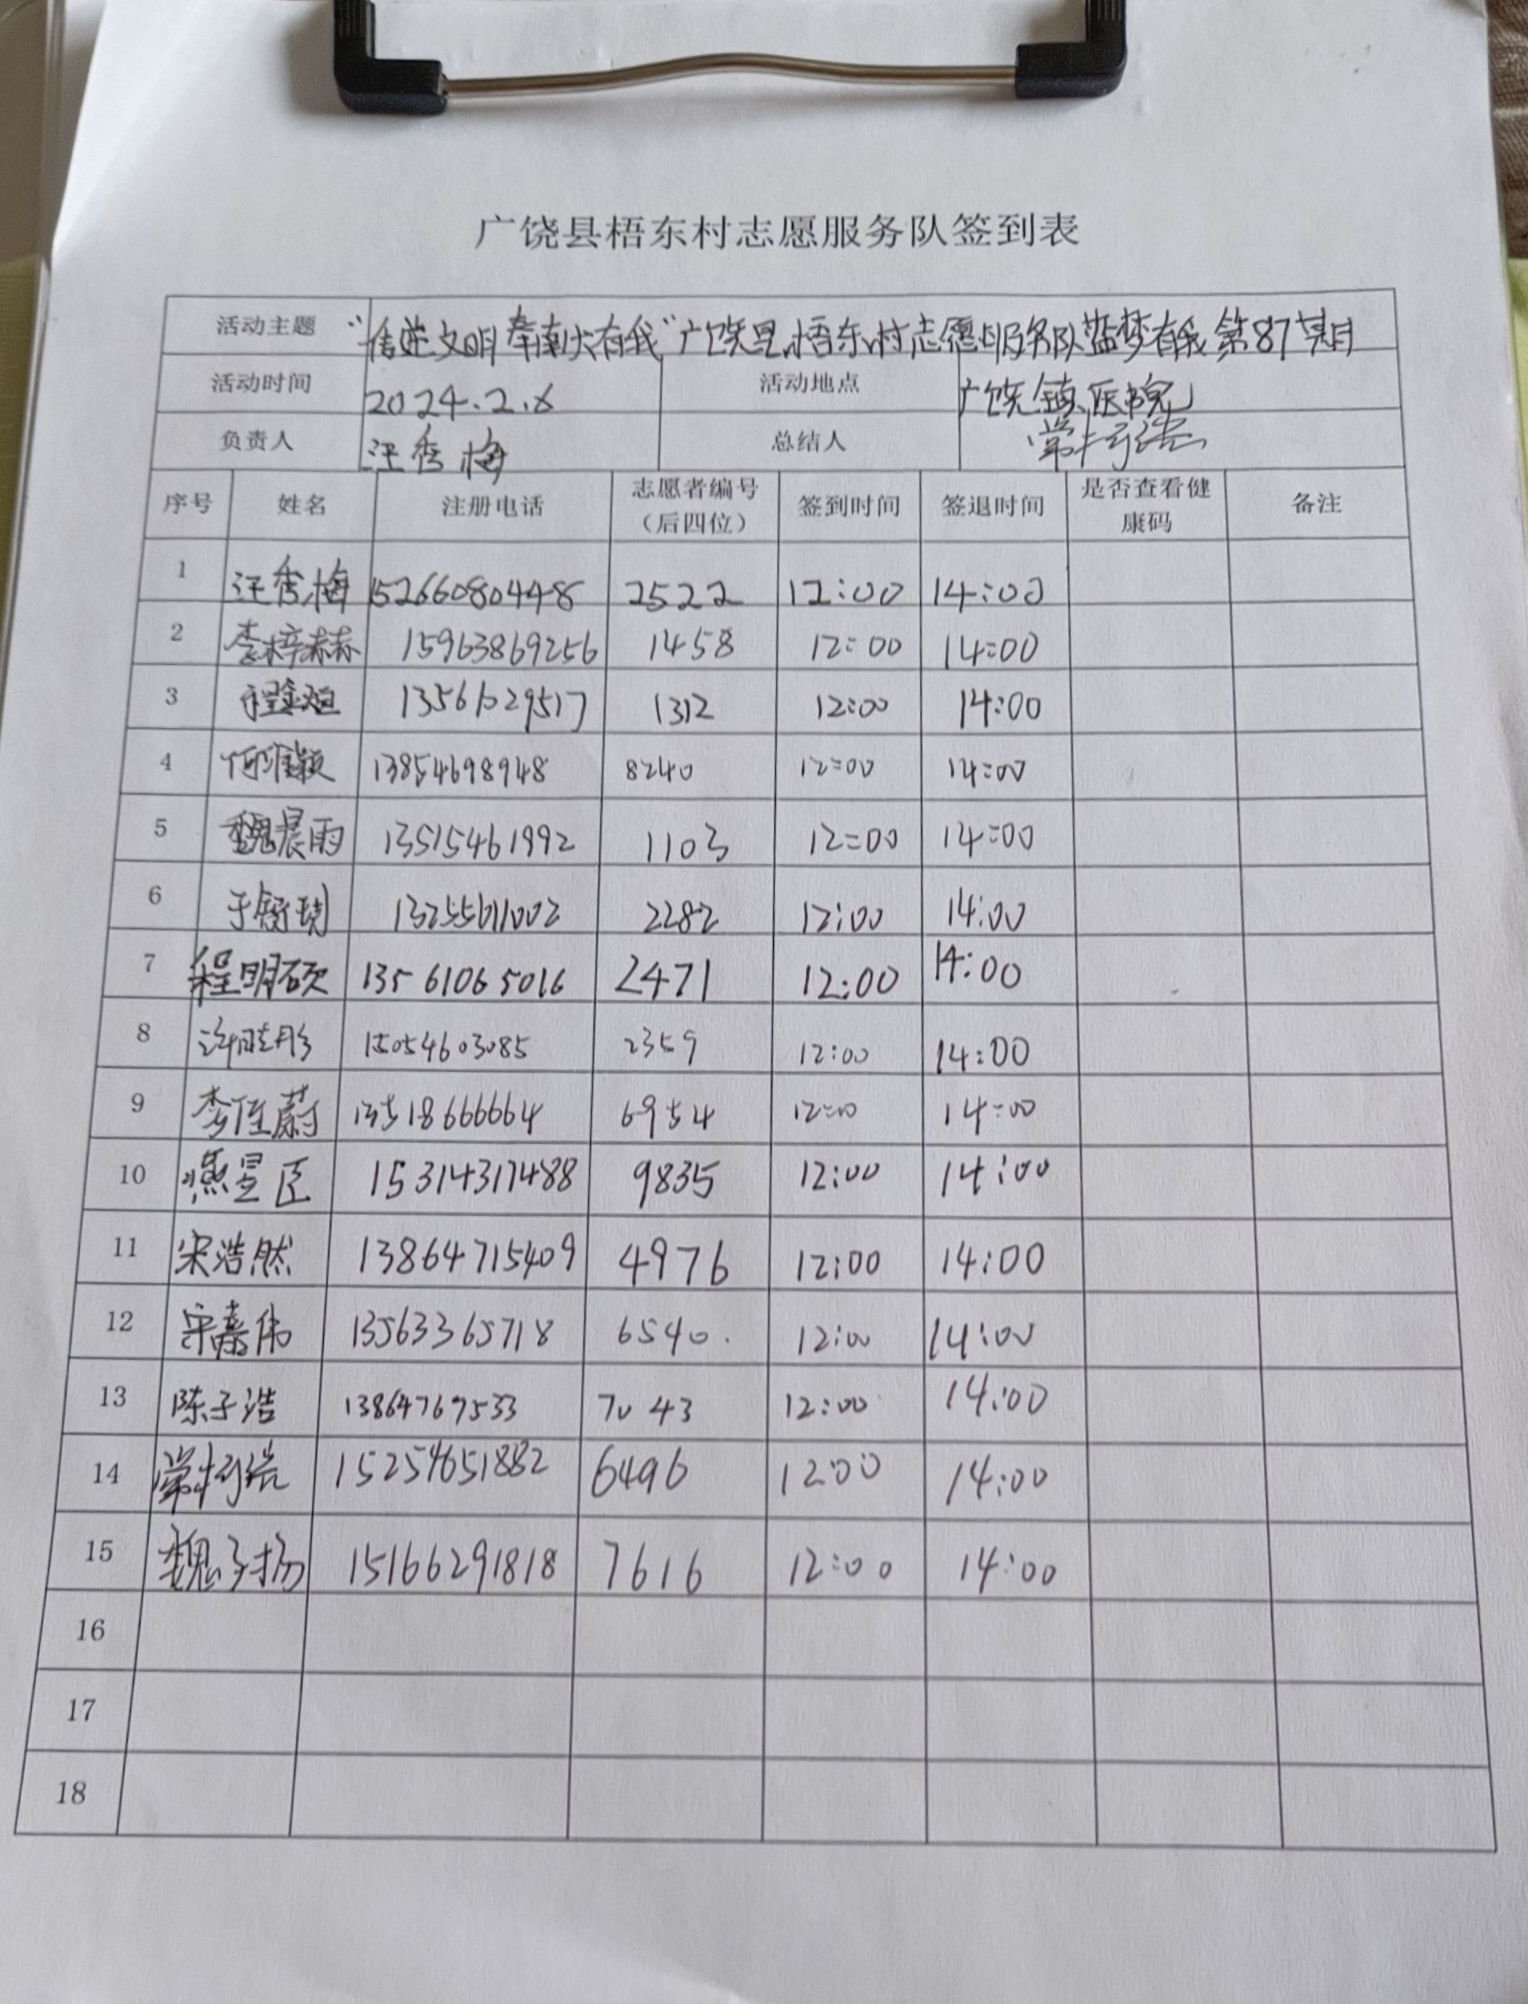 广饶县梧东村志愿服务队签到表
活动主题 “信逆文明 奉南大有我”广饶县梧东村志愿服务队蓝梦有我第87期
活动时间 2024.2.8 活动地点 广饶镇医院
负责人 汪秀梅 总结人
序号 姓名 注册电话 志愿者编号（后四位） 签到时间 签退时间 是否查看健康码 备注
1 汪秀梅 15266080448 2522 12:00 14:00
2 李梓赫 15963869256 1458 12:00 14:00
3 1312 12:00 14:00
4 13854698948 8240 12:00 14:00
5 魏晨雨 13515461992 1103 12:00 14:00
6 于舒琪 13255611002 2282 12:00 14:00
7 程明硕 13561065016 2471 12:00 14:00
8 许晴彤 15054603085 2359 12:00 14:00
9 李佳蔚 13518666664 6954 12:00 14:00
10 燕昱臣 15314317488 9835 12:00 14:00
11 宋浩然 13864715409 4976 12:00 14:00
12 宋嘉伟 13563365718 6540 12:00 14:00
13 陈子浩 13864769533 7043 12:00 14:00
14 15254651882 6496 12:00 14:00
15 魏子扬 15166291818 7616 12:00 14:00
16
17
18